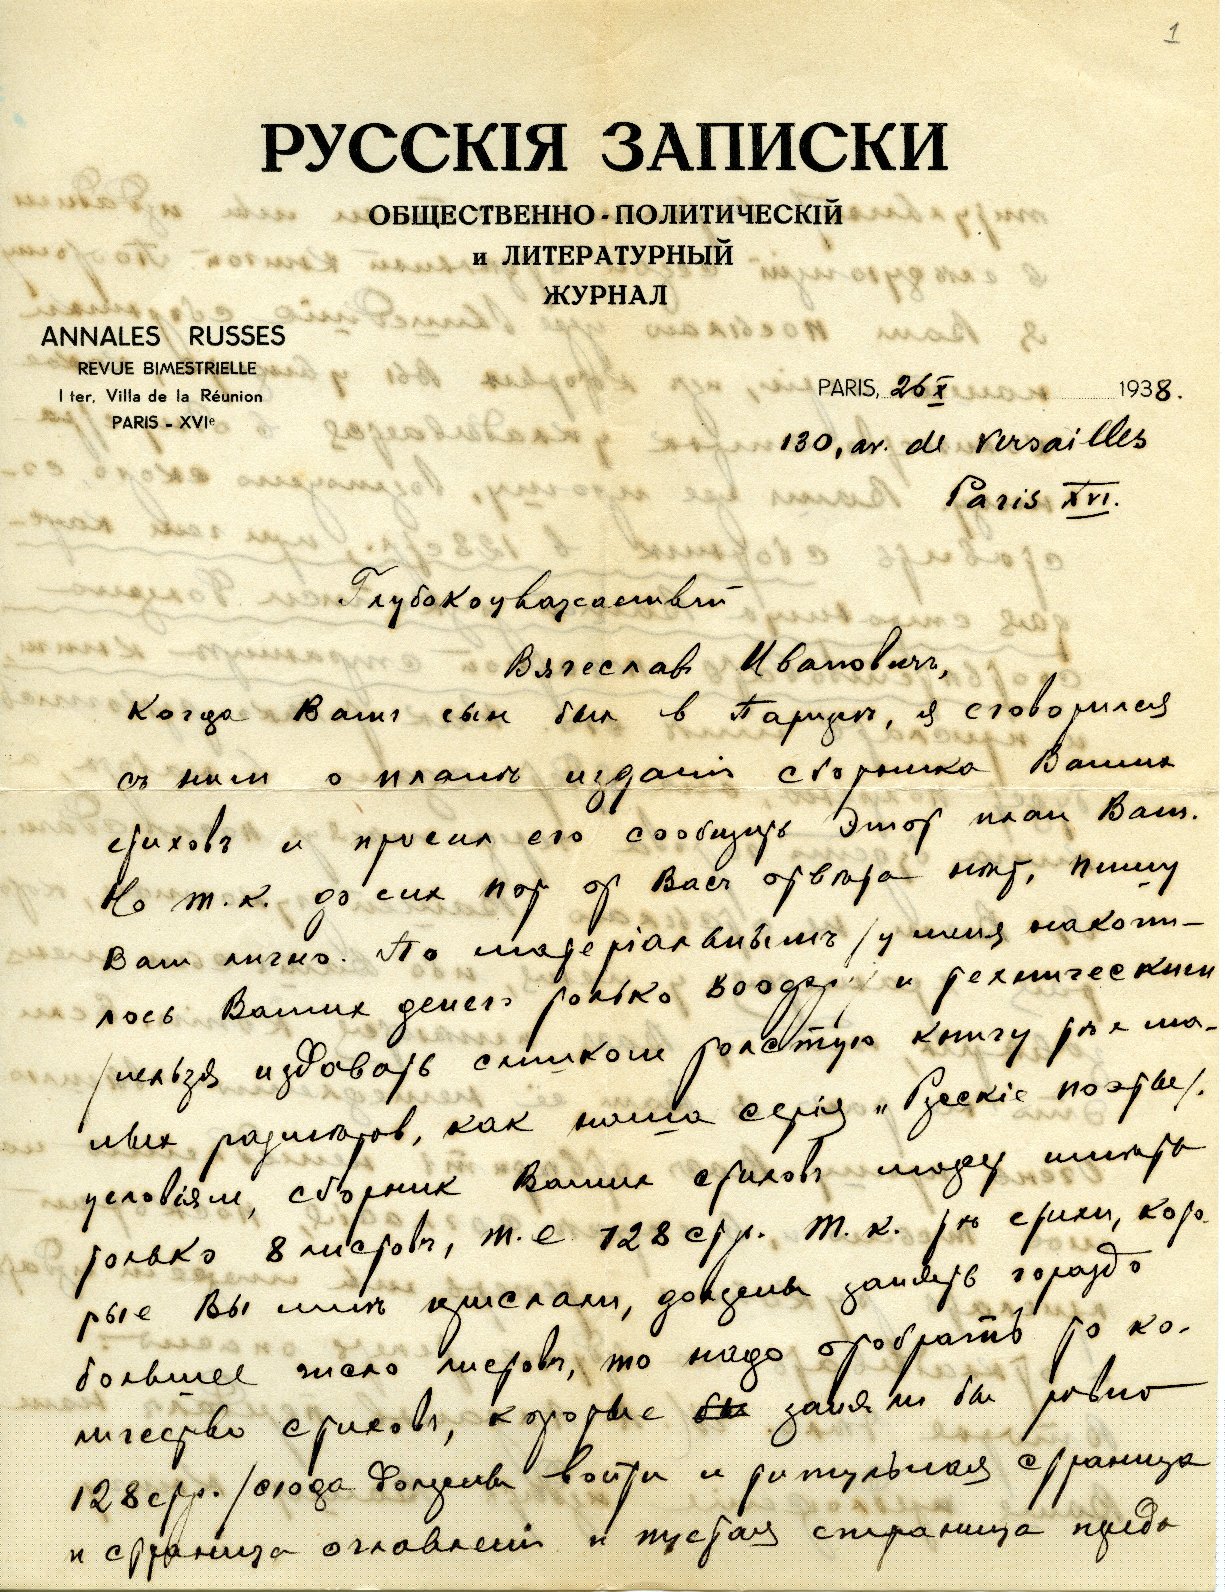 1
РУССКІЯ ЗАПИСКИ
ОБЩЕСТВЕННО-ПОЛИТИЧЕСКІЙ
и ЛИТЕРАТУРНЫЙ
ЖУРНАЛ
ANNALES RUSSES
REVUE BIMESTRIELLE
1 ter, Villa de la Réunion
PARIS - XVIe
PARIS, 26 X 1938.
130, av. de Versailles
Paris XVI.
Глубокоуважаемый
Вячеслав Иванович,
Когда Ваш сын был в Париже, я сговорился
съ ним о планѣ изданія сборника Ваших
стиховъ и просил его сообщить этот план Вам.
Но т.к. до сих пор от Васъ отвѣта нѣт, пишу
Вам лично. По матеріальнымъ /у меня накопи-
лось Ваших денег только 800 фр./ и техническим
/нельзя издавать слишком толстую книгу тѣх ма-
лых размѣров, как наша серія „Русскіе поэты"/.
условіям, сборник Ваших стиховъ может имѣть
только 8 листовъ, т.е. 128 стр. Т.к. тѣ стихи, кото-
рые Вы мнѣ прислали, должны занять гораздо
большее число листовъ, то надо отобрать то ко-
личество стиховъ, которые заняли бы ровно
128 стр. /сюда должны войти и титульная страница
и страница оглавленія и пустая страница предъ